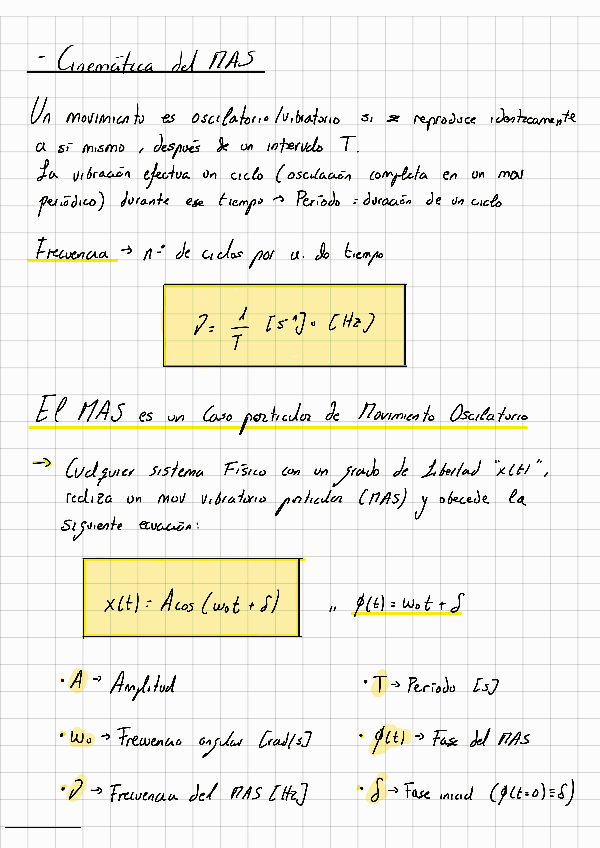 - Cinemática del MAS
Un movimiento es oscilatorio/vibratorio si se reproduce idénticamente
a sí mismo, después de un intervalo T.
La vibración efectua un ciclo (oscilación completa en un mov
periódico) durante ese tiempo → Período = duración de un ciclo
Frecuencia → n.º de ciclos por u. de tiempo
ν = 1/T [s⁻¹] = [Hz]
El MAS es un Caso particular de Movimiento Oscilatorio
→ Cualquier sistema Físico con un grado de Libertad "x(t)",
realiza un mov vibratorio particular (MAS) y obecede la
siguiente ecuación:
x(t) = A cos (ω₀t + δ) ,, ϕ(t) = ω₀t + δ
· A → Amplitud · T → Período [s]
· ω₀ → Frecuencia angular [rad/s] · ϕ(t) → Fase del MAS
· ν → Frecuencia del MAS [Hz] · δ → Fase inicial (ϕ(t=0) ≡ δ)